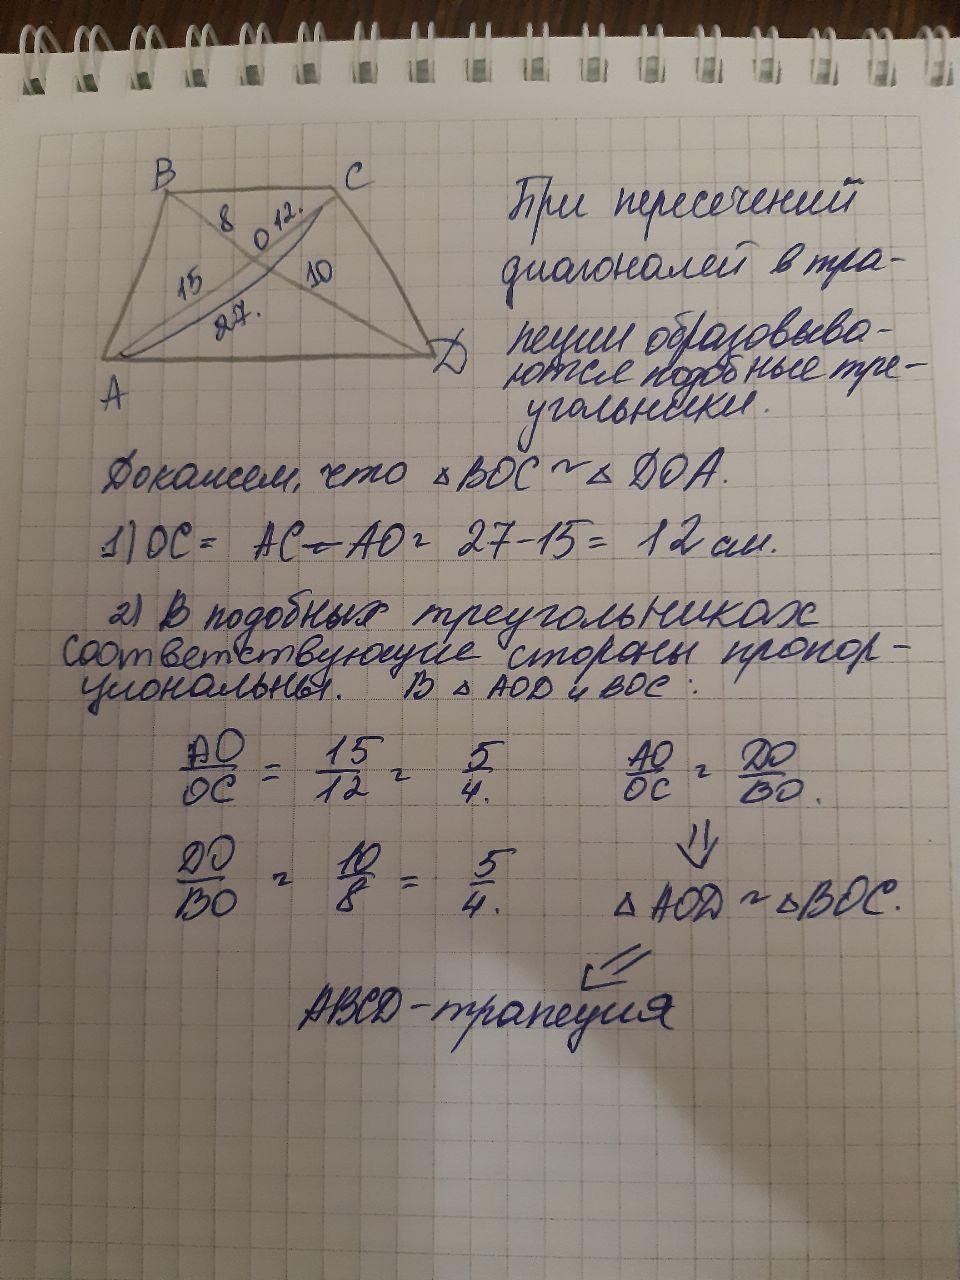 B
C
8
12.
O
15
10
27.
A
D
При пересечений
диагоналей в тра-
пеции образовыва-
ются подобные тре-
угольники.
Докажем, что △BOC ~ △ DOA.
1) OC = AC - AO = 27-15 = 12 см.
2) В подобных треугольниках
соответствующие стороны пропор-
циональны. В △ AOD и BOC:
AO/OC = 15/12 = 5/4. AO/OC = DO/BO.
⇓
DO/BO = 10/8 = 5/4. △ AOD ~ △BOC.
⇙
ABCD - трапеция